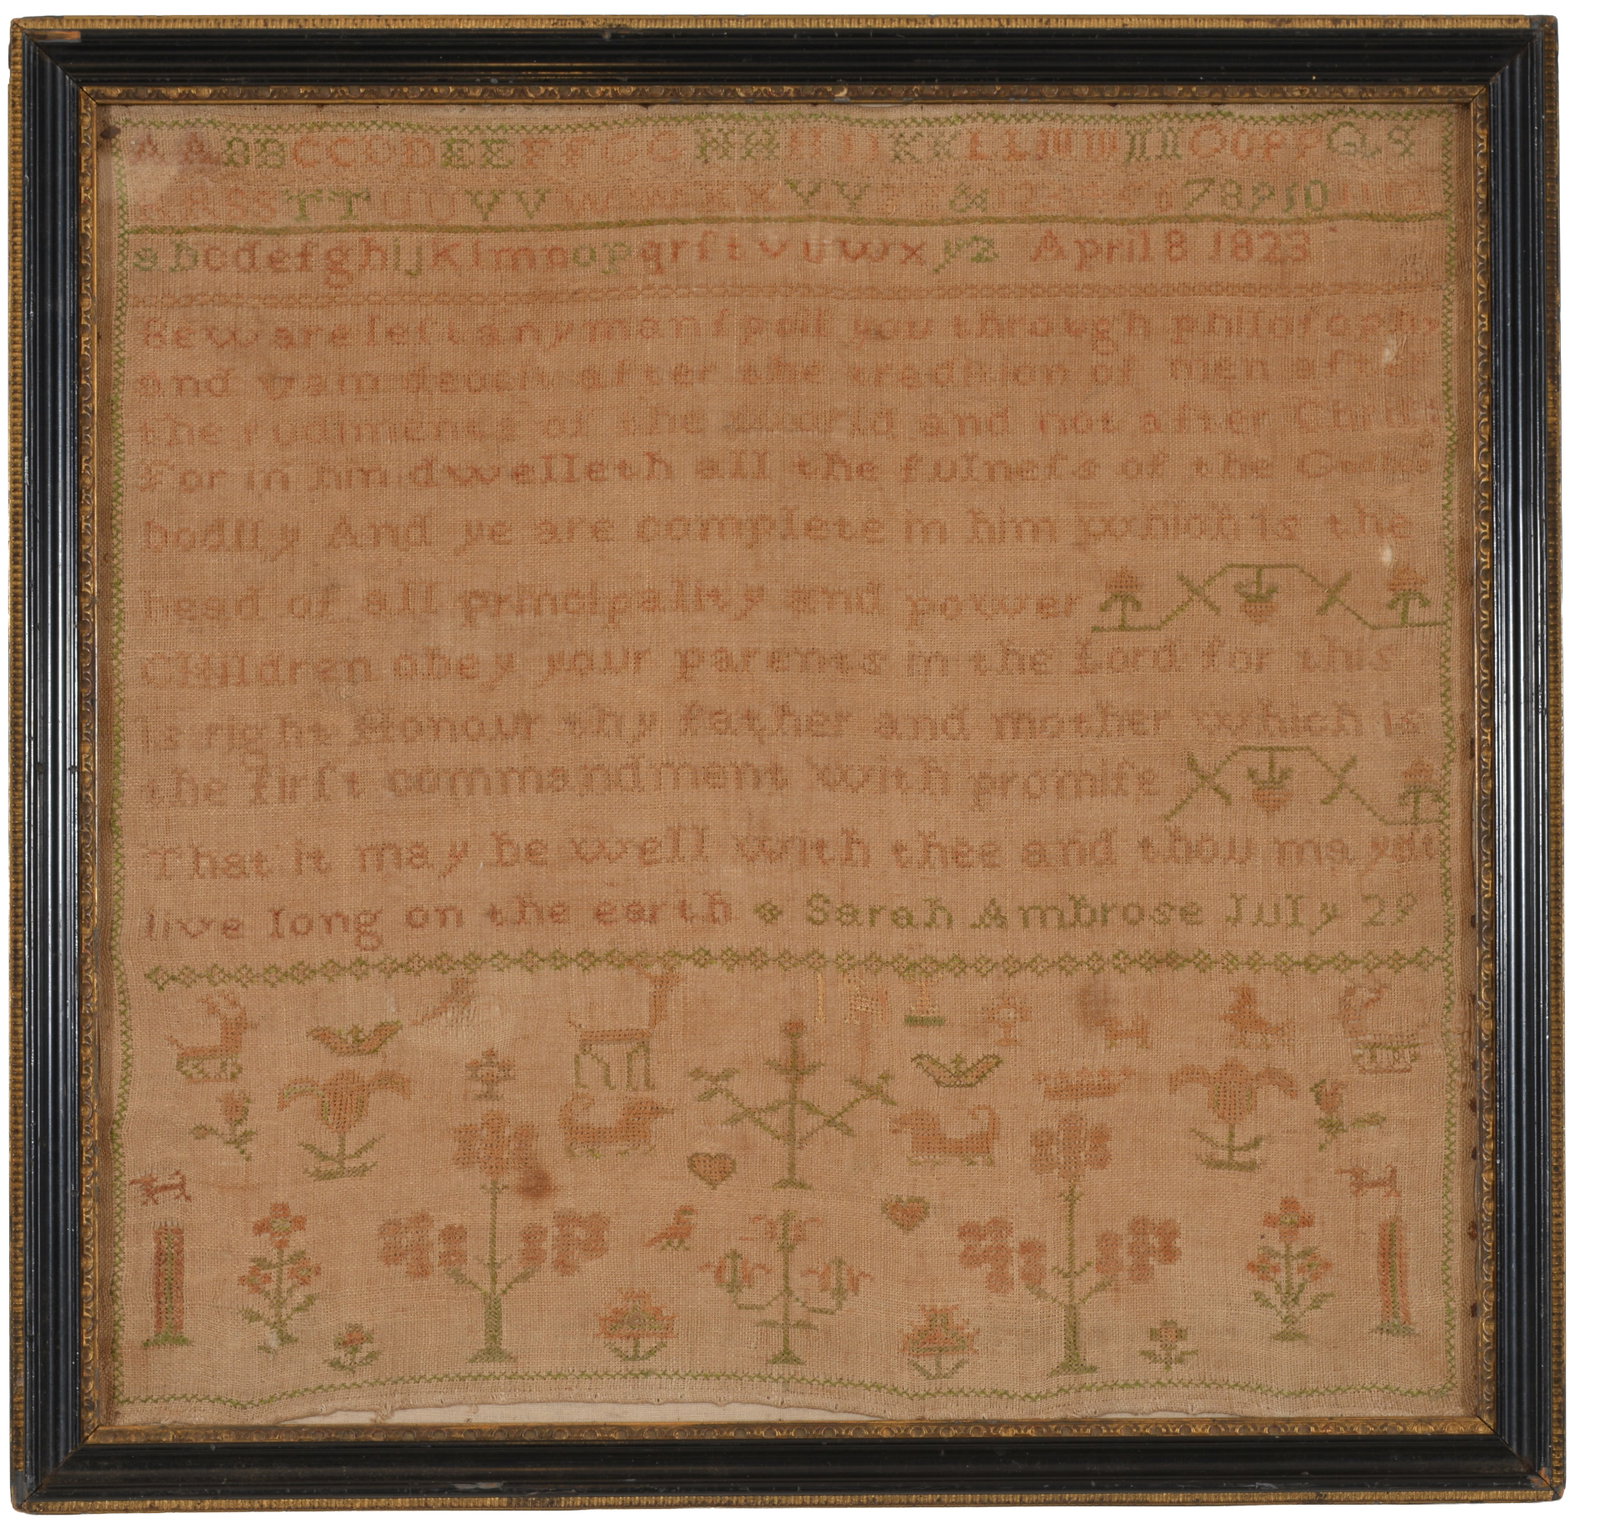 A A B B C C D D E E F F G G H H I I J J K K L L M M N N O O P P Q
R R S S T T U U V V W W X X Y Y & 1 2 3 4 5 6 7 8 9 10 11 12
a b c d e f g h i j k l m n o p q r ſ t v u w x y z April 8 1823
Beware leſt any man ſpoil you through philoſophy
and vain deceit after the tradition of men after
the rudiments of the World and not after Chriſt
For in him dwelleth all the fulneſs of the
bodily And ye are complete in him which is the
head of all principality and power
Children obey your parents in the Lord for this
is right Honour thy father and mother which is
the firſt commandment with promiſe
That it may be well with thee and thou mayst
live long on the earth Sarah Ambrose July 29